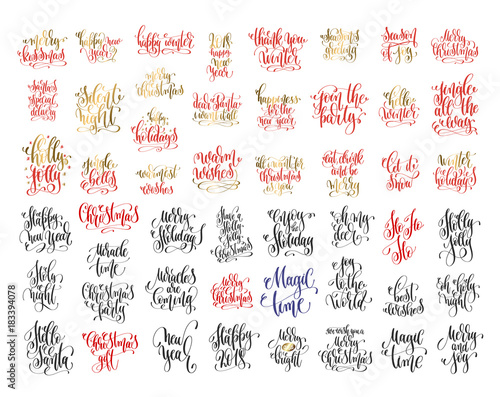 merry
kristmas
happy
new
year
happy winter
2018
happy
new year
thank you
winter
season's
greeting
season
of joy
Merry
Christmas
Santa's
special
delivery
Silent
night
merry
christmas
happy
holidays
dear Santa
i want it all
happiness
for the
new year
join the
party
hello
winter
jingle
all the
way
holly
jolly
jingle
bells
warmest
wishes
warm
wishes
all i want for
christmas
is you
eat drink
and be
merry
let it
snow
winter
holidays
Happy
New Year
Christmas
Miracle
time
Merry
Holidays
Have a
Holly
Jolly
Christmas
Enjoy
the
Holiday
oh my
deer
Ho
Ho
Ho
Holly
Jolly
Holy
night
Christmas
party
Miracles
are
Coming
Merry
Christmas
Magic
time
Joy
to the
World
best
wishes
oh holy
night
Hello
Santa
Christmas
gift
New
Year
Happy
2018
Merry
Bright
we wish you a
Merry
Christmas
Magic
time
Merry
and
Joy
Adobe Stock | #183394078